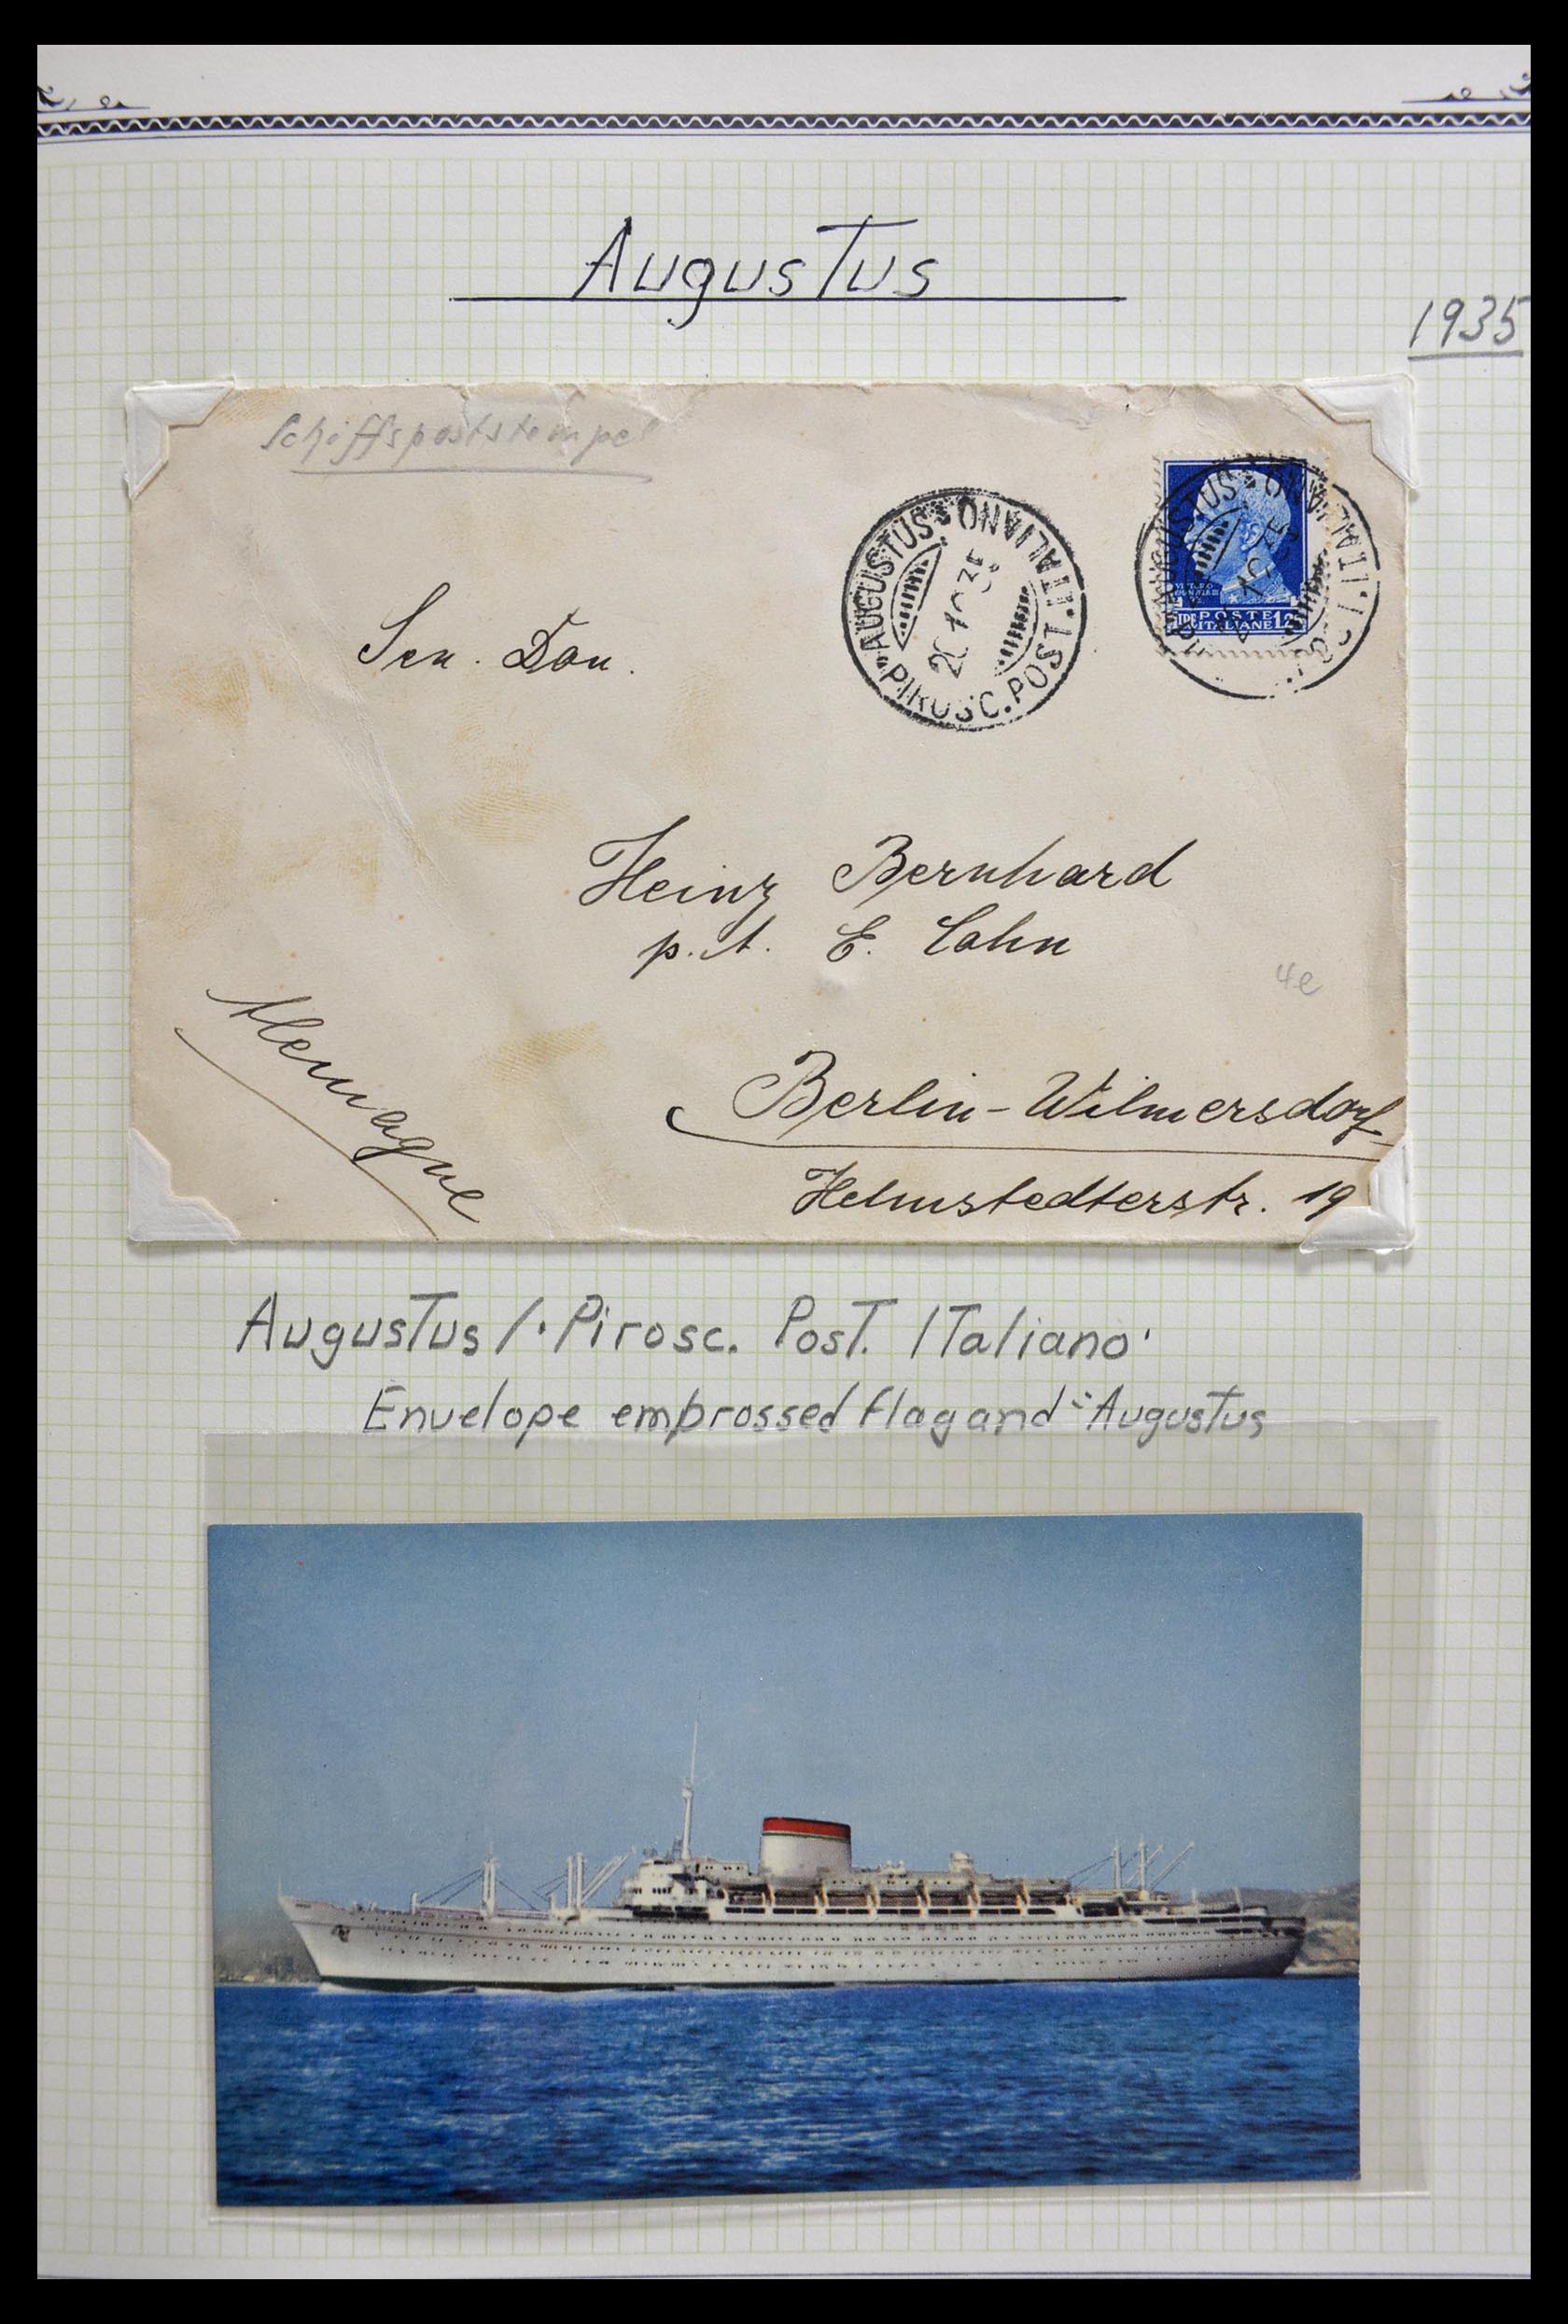 Augustus
1935
Schiffspoststempel
AUGUSTUS
PIROSC. POST. ITALIANO
AUGUSTUS
ITALIANO
POSTE
ITALIANE
Sen. Don.
Heinz Bernhard
p. A. E. Cohn
4e
Allemagne
Berlin-Wilmersdorf
Helmstedterstr. 19
Augustus / · Pirosc. Post. Italiano'
Envelope embrossed flag and "Augustus